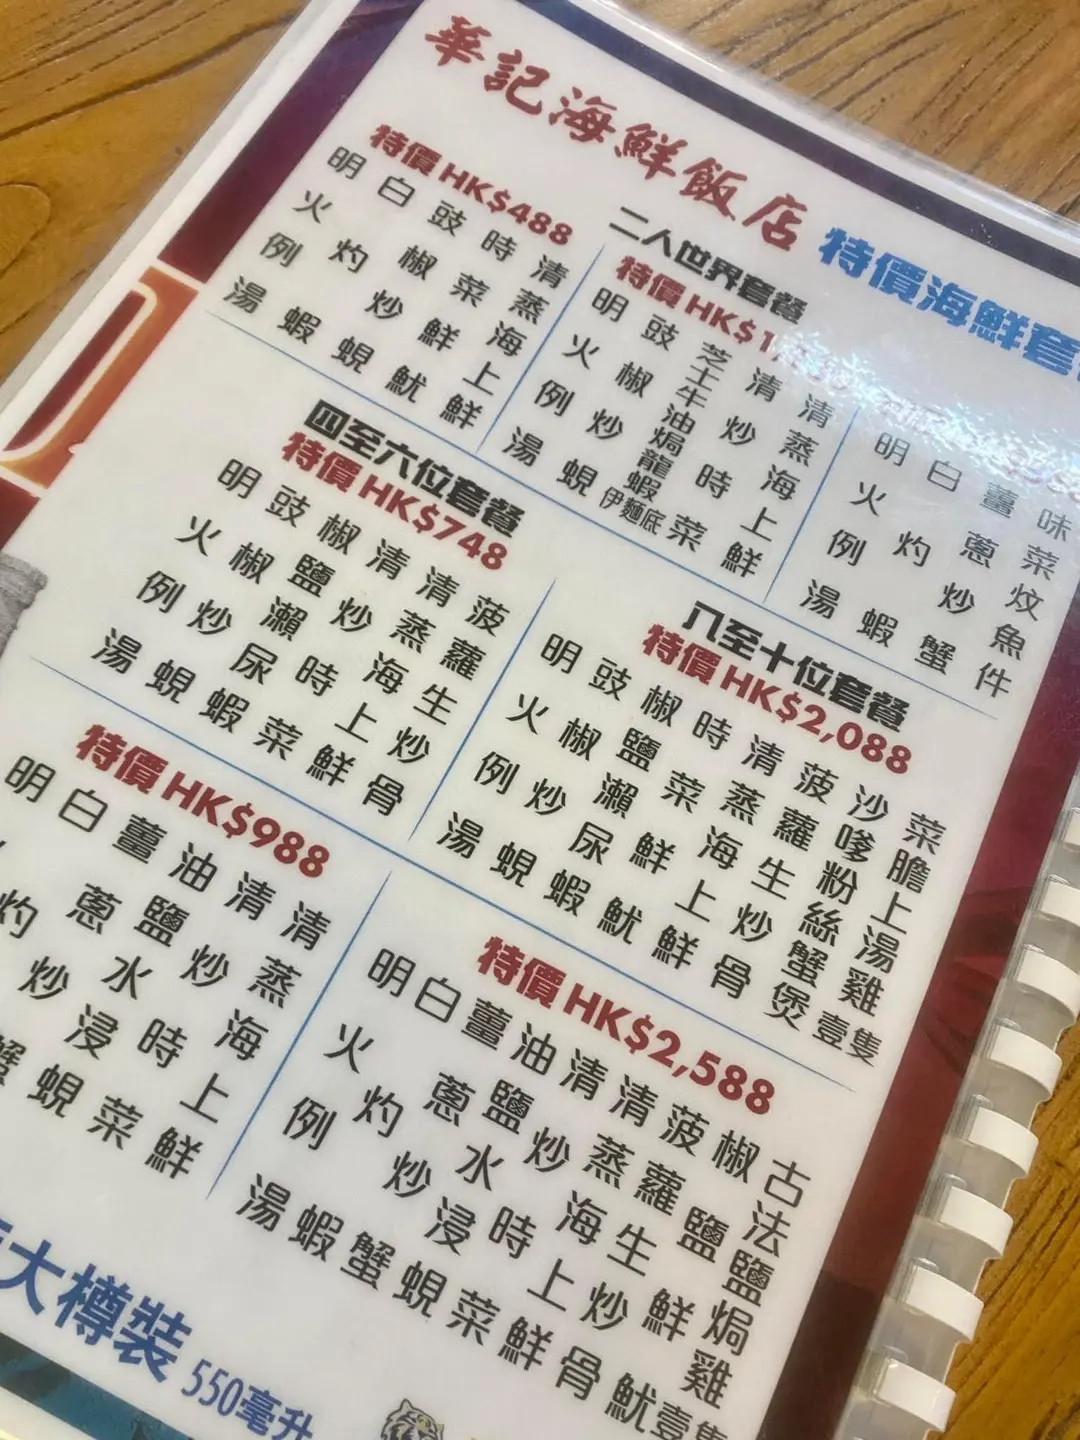 華記海鮮飯店
特價海鮮套
特價HK$488
明火例湯
白灼蝦
豉椒炒蜆
時菜鮮魷
清蒸海上鮮
二人世界套餐
特價HK$1
明火例湯
豉椒炒蜆
芝士牛油焗龍蝦伊麵底
清炒時菜
清蒸海上鮮
明火例湯
白灼蝦
薑蔥炒蟹
味菜炆魚件
四至六位套餐
特價HK$748
明火例湯
豉椒炒蜆
椒鹽瀨尿蝦
清炒時菜
清蒸海上鮮
菠蘿生炒骨
八至十位套餐
特價HK$2,088
明火例湯
豉椒炒蜆
椒鹽瀨尿蝦
時菜鮮魷
清蒸海上鮮
菠蘿生炒骨
沙嗲粉絲蟹煲
菜膽上湯雞壹隻
特價HK$988
明
白灼
薑蔥炒蟹
油鹽水浸蜆
清炒時菜
清蒸海上鮮
特價HK$2,588
明火例湯
白灼蝦
薑蔥炒蟹
油鹽水浸蜆
清炒時菜
清蒸海上鮮
菠蘿生炒骨
椒鹽鮮魷
古法鹽焗雞壹隻
大樽裝 550毫升